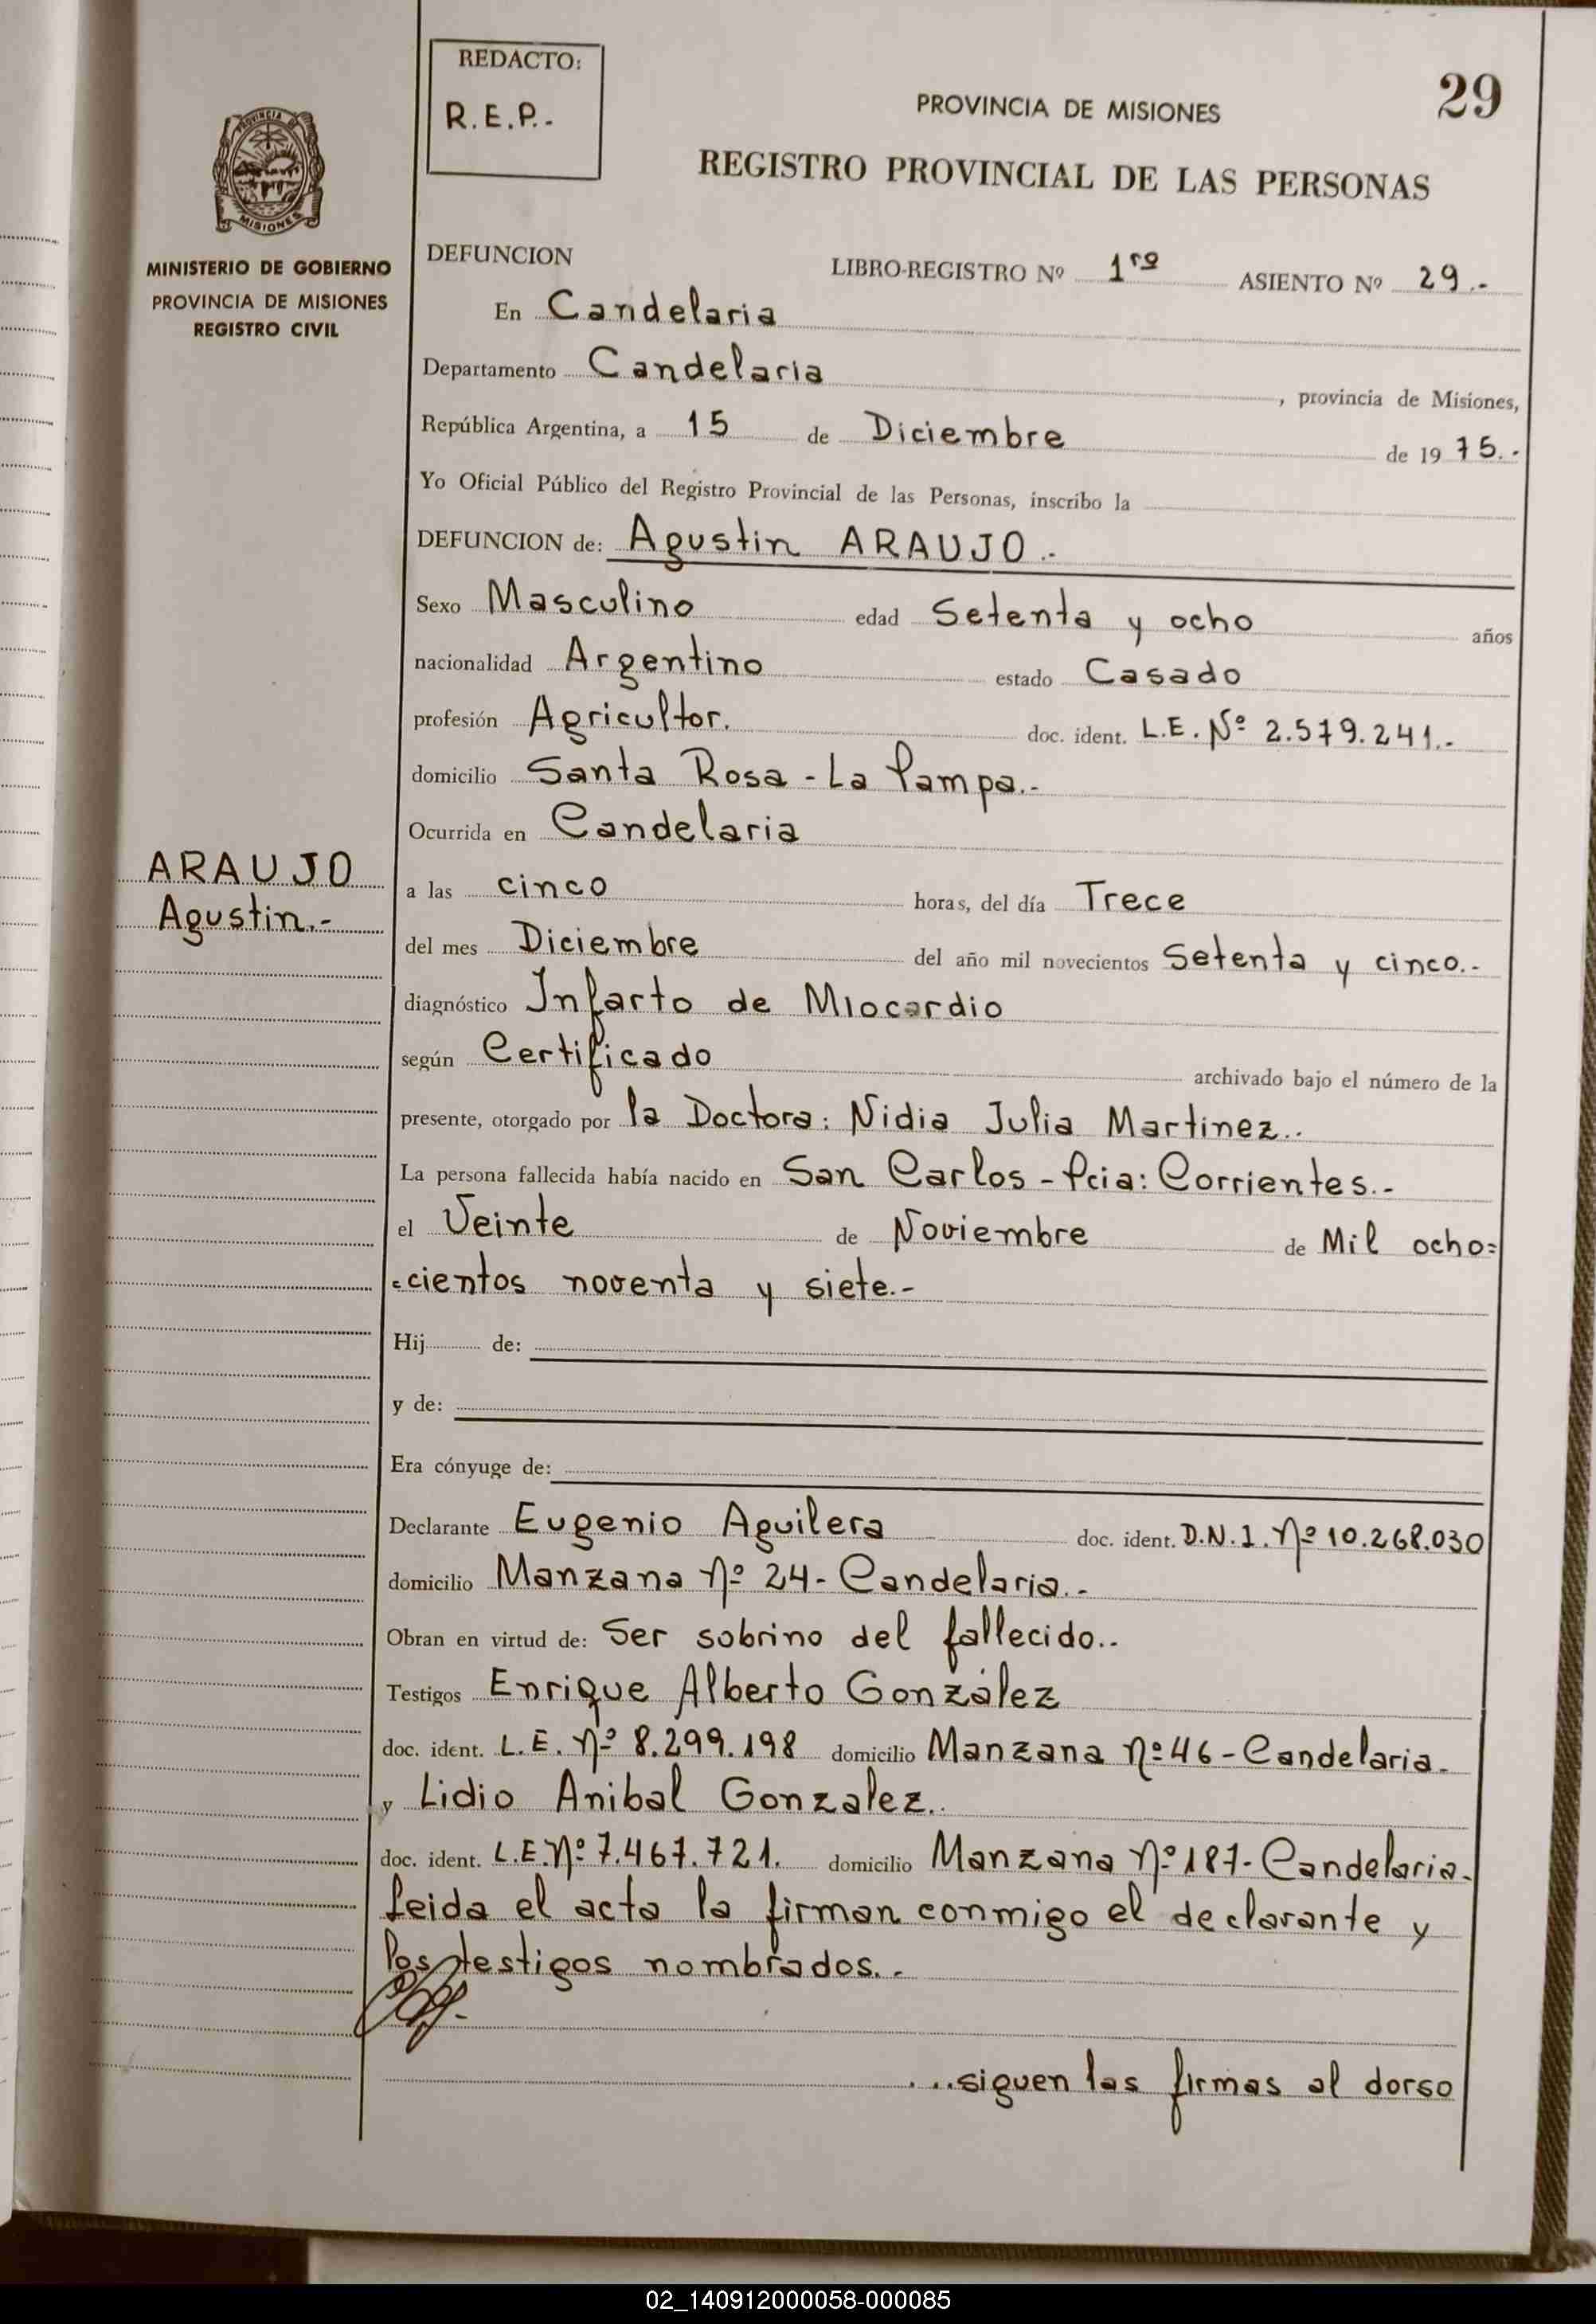 REDACTO:
R.E.P.-
29
PROVINCIA DE MISIONES
REGISTRO PROVINCIAL DE LAS PERSONAS
PROVINCIA DE
MISIONES
MINISTERIO DE GOBIERNO
PROVINCIA DE MISIONES
REGISTRO CIVIL
DEFUNCION LIBRO-REGISTRO Nº 1rº ASIENTO Nº 29.-
En Candelaria
Departamento Candelaria, provincia de Misiones,
República Argentina, a 15 de Diciembre de 1975.-
Yo Oficial Público del Registro Provincial de las Personas, inscribo la
DEFUNCION de: Agustin ARAUJO.-
Sexo Masculino edad Setenta y ocho años
nacionalidad Argentino estado Casado
profesión Agricultor. doc. ident. L.E. Nº 2.579.241.-
domicilio Santa Rosa - La Pampa.-
Ocurrida en Candelaria
ARAUJO
Agustin.-
a las cinco horas, del día Trece
del mes Diciembre del año mil novecientos Setenta y cinco.-
diagnóstico Infarto de Miocardio
según Certificado archivado bajo el número de la
presente, otorgado por la Doctora: Nidia Julia Martinez..
La persona fallecida había nacido en San Carlos - Pcia: Corrientes.-
el Veinte de Noviembre de Mil ocho=
=cientos noventa y siete.-
Hij de:
y de:
Era cónyuge de:
Declarante Eugenio Aguilera doc. ident. D.N.I. Nº 10.268.030
domicilio Manzana Nº 24 - Candelaria.-
Obran en virtud de: Ser sobrino del fallecido..
Testigos Enrique Alberto González
doc. ident. L.E. Nº 8.299.198 domicilio Manzana nº 46 - Candelaria.
y Lidio Anibal Gonzalez..
doc. ident. L.E. Nº 7.467.721. domicilio Manzana Nº 187 - Candelaria.
leida el acta la firman conmigo el declarante y
los testigos nombrados.-
...siguen las firmas al dorso
02_140912000058-000085